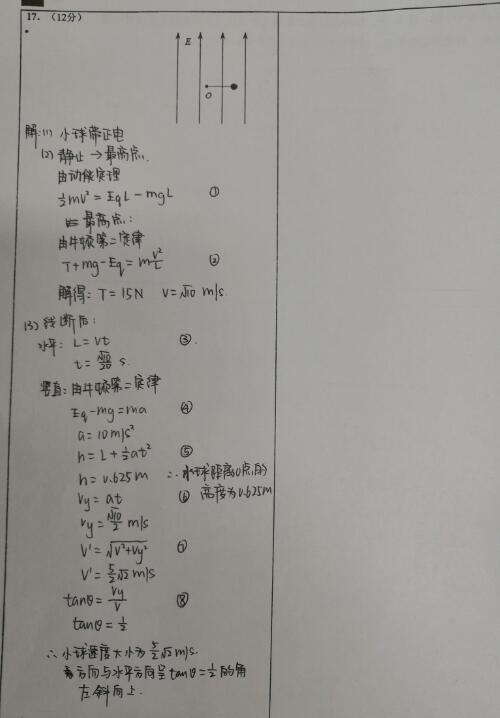 17. （12分）
E
O
解:(1) 小球带正电
(2) 静止→最高点.
由动能定理
½mv² = EqL − mgL ①
最高点:
由牛顿第二定律
T+mg−Eq = m v²/L ②
解得: T = 15N  v = √10 m/s.
(3) 线断后:
水平: L = vt ③.
t = √10/20 s.
竖直: 由牛顿第二定律
Eq−mg=ma ④
a = 10m/s²
h = L + ½at² ⑤
h = 0.625m ∴ 小球距离O点的
高度为0.625m
vy = at ⑥
vy = √10/2 m/s
v' = √(v²+vy²) ⑦
v' = 5/2 √2 m/s
tanθ = vy/v ⑧
tanθ = ½
∴ 小球速度大小为 5/2 √2 m/s.
方向与水平方向呈 tanθ = ½ 的角
左斜向上.